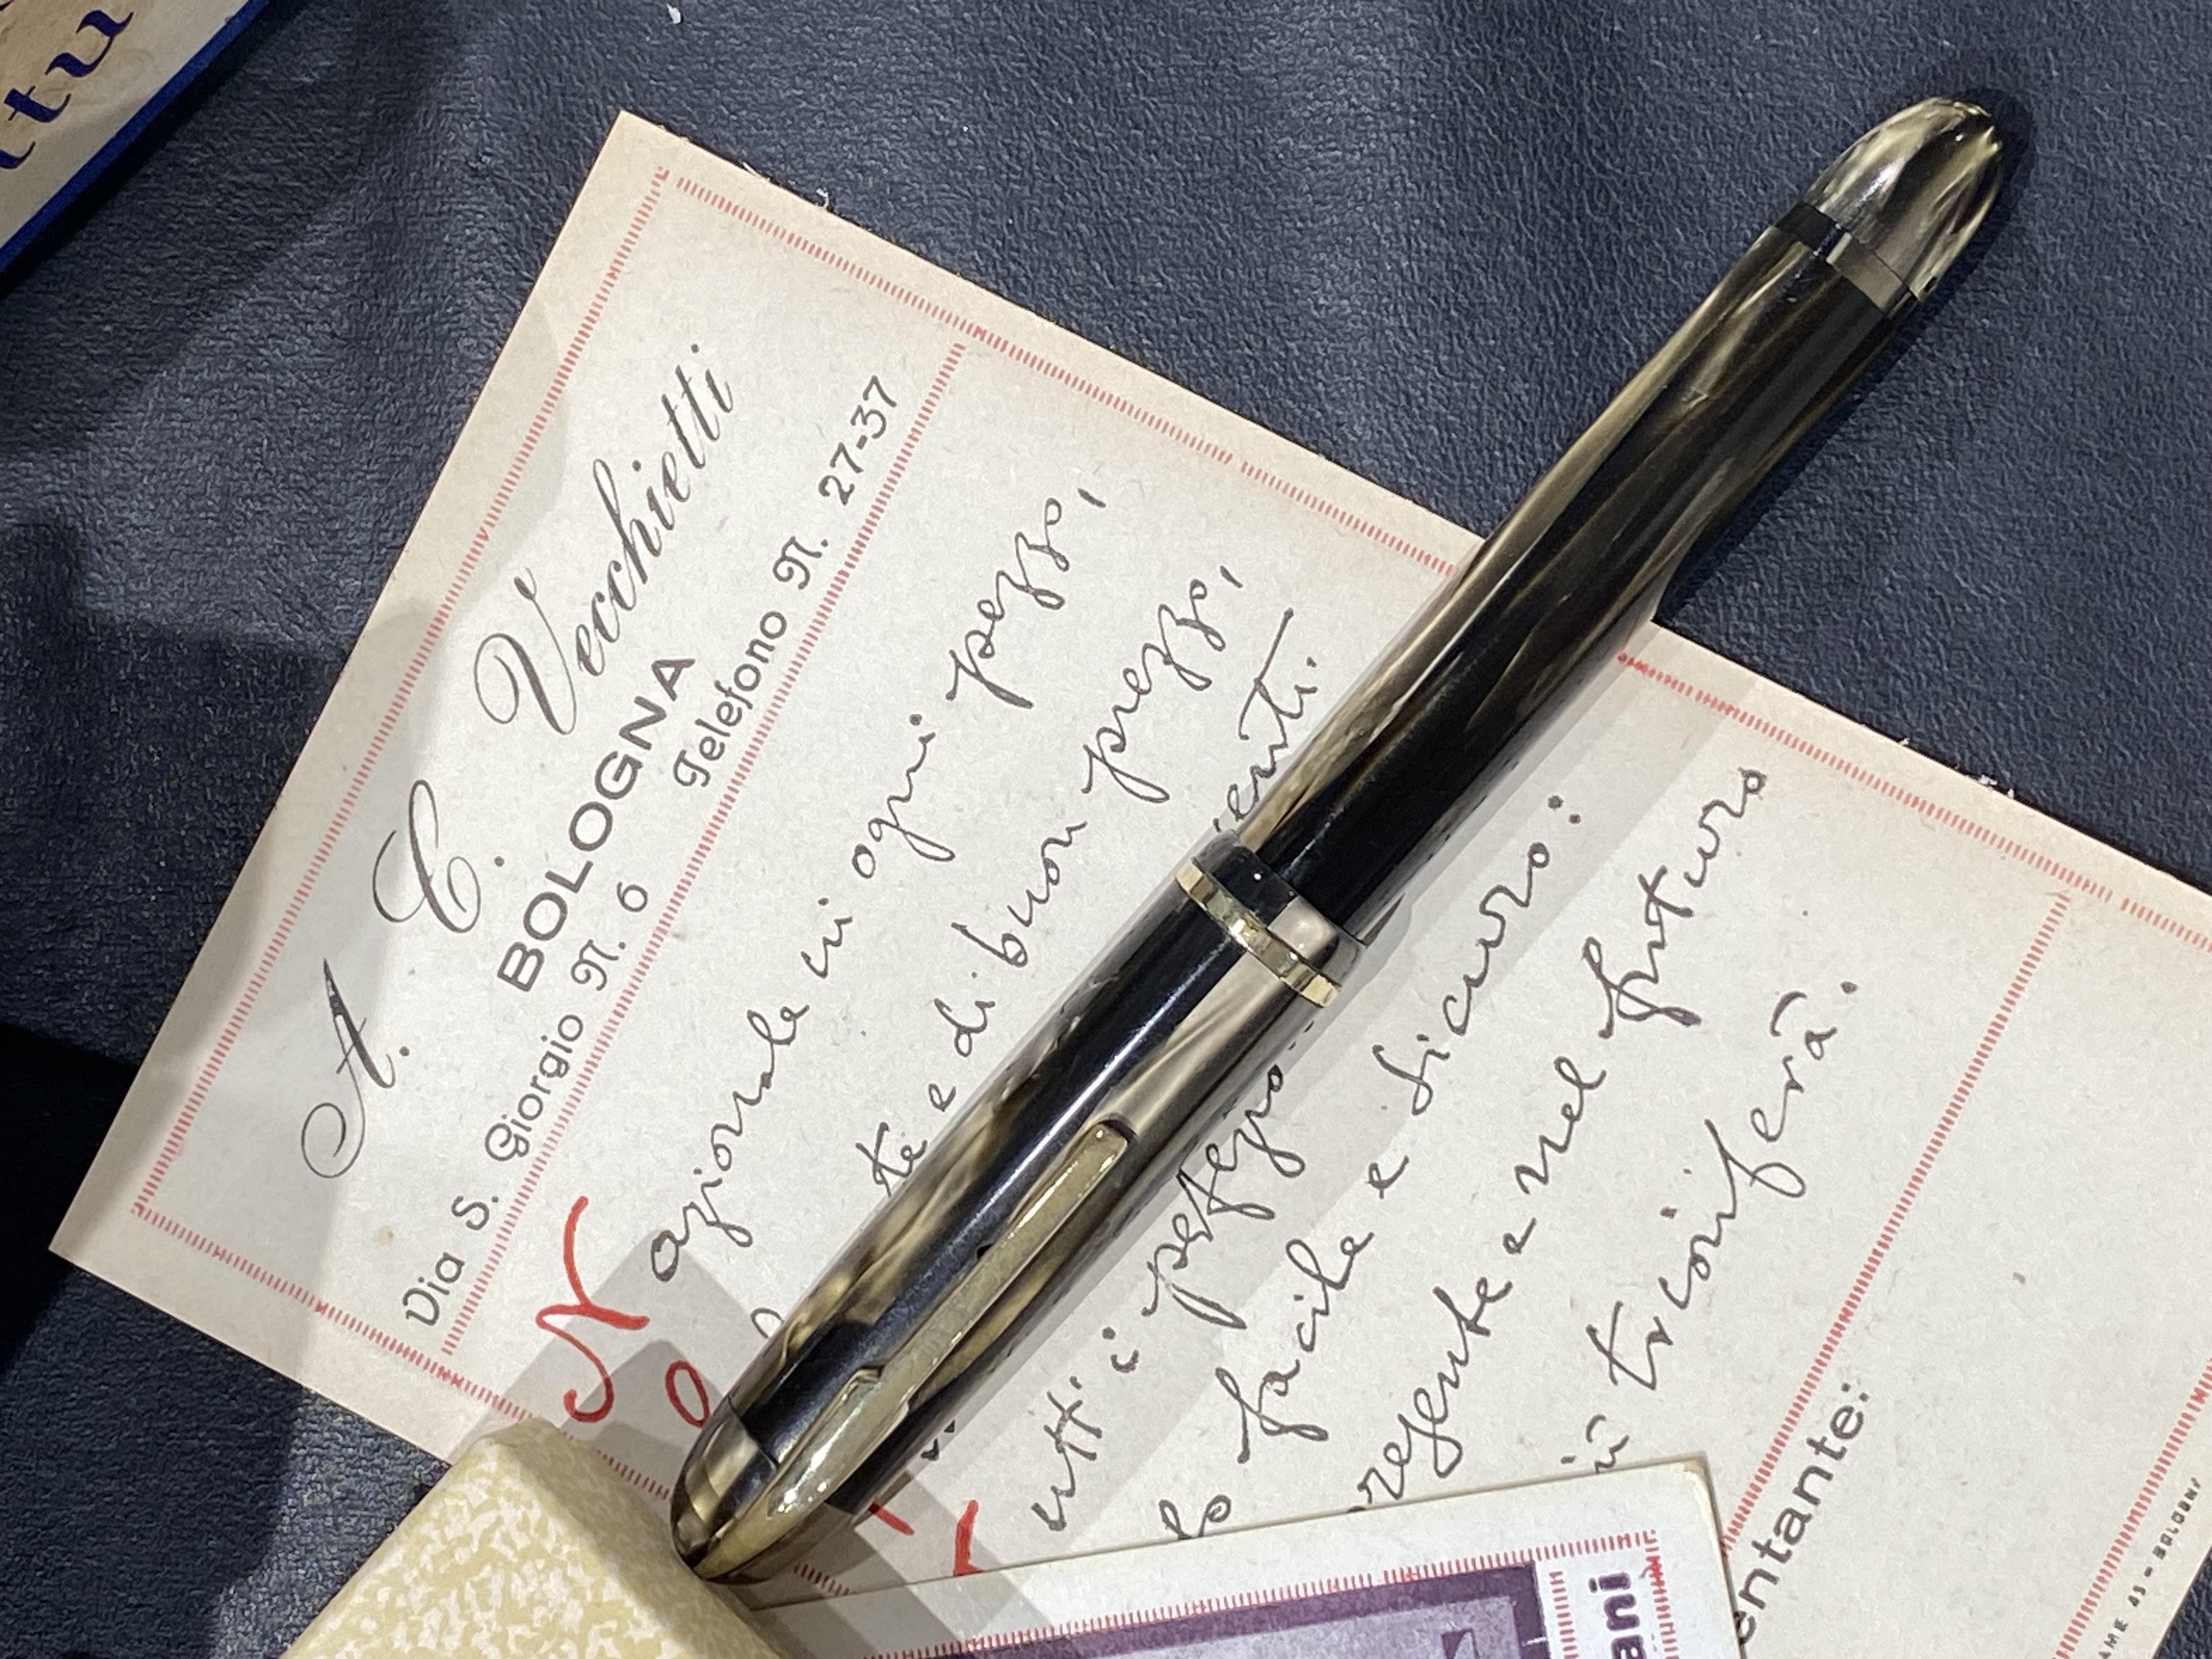 A. C. Vecchietti
BOLOGNA
Via S. Giorgio N. 6 Telefono N. 27-37
N azionale in ogni pezzo,
O te e di buon prezzo,
enti.
utti i pe
lo facile e sicuro:
resente e nel futuro
iù trionferà.
entante:
ani
ttu